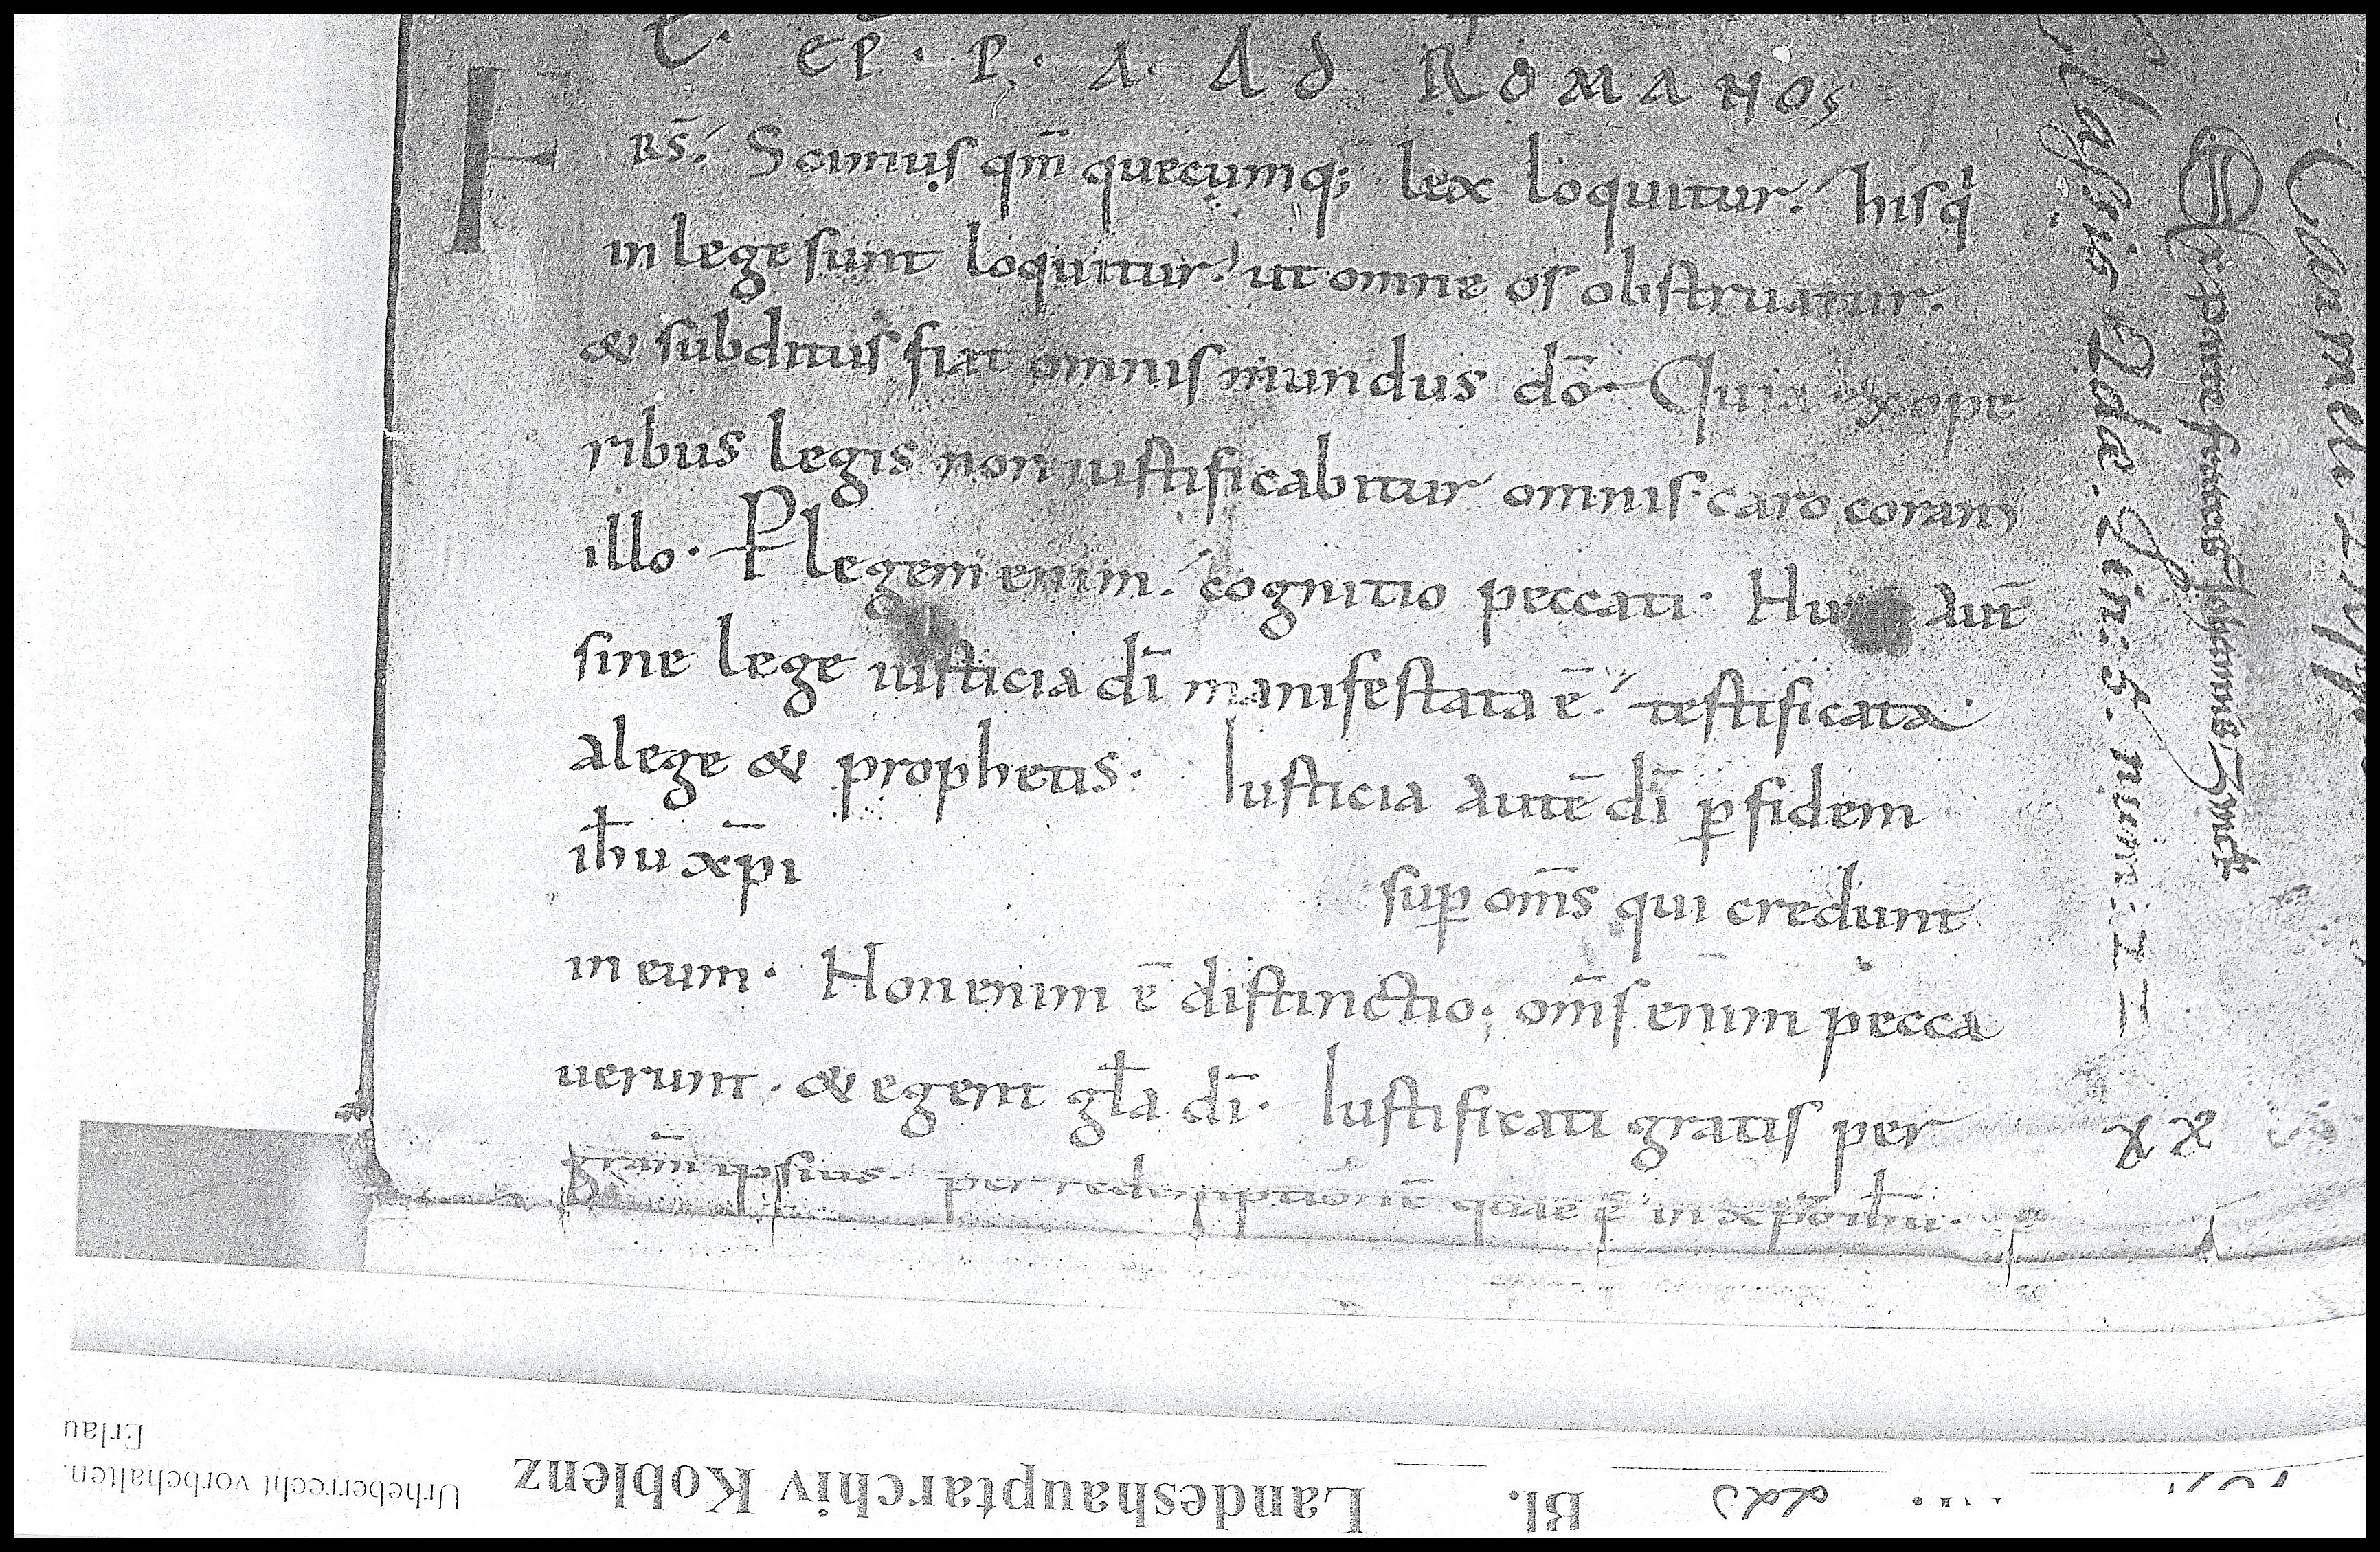 L. EP. P. A. AD ROMANOS
F
RS. Scimus qm̄ quecumq; lex loquitur. hisq
in lege sunt loquitur. ut omne os obstruatur.
& subditus fiat omnis mundus dō. Quia ex ope
ribus legis non iustificabitur omnis caro coram
illo. P legem enim. cognitio peccati. Nu aut̄
sine lege iusticia dī manifestata ē. testificata
a lege & prophetis. Iusticia autē dī p fidem
ih̄u xp̄i
sup om̄s qui credunt
in eum. Non enim ē distinctio. om̄s enim pecca
uerunt. & egent gl̄a dī. Iustificati gratis per
gram̄ ipsius. per redemptionē quae ē in xpō ih̄u.
xx
Classis
Ex parte fratris Johannis
Landeshauptarchiv Koblenz
Bl.
Urheberrecht vorbehalten.
Erlau